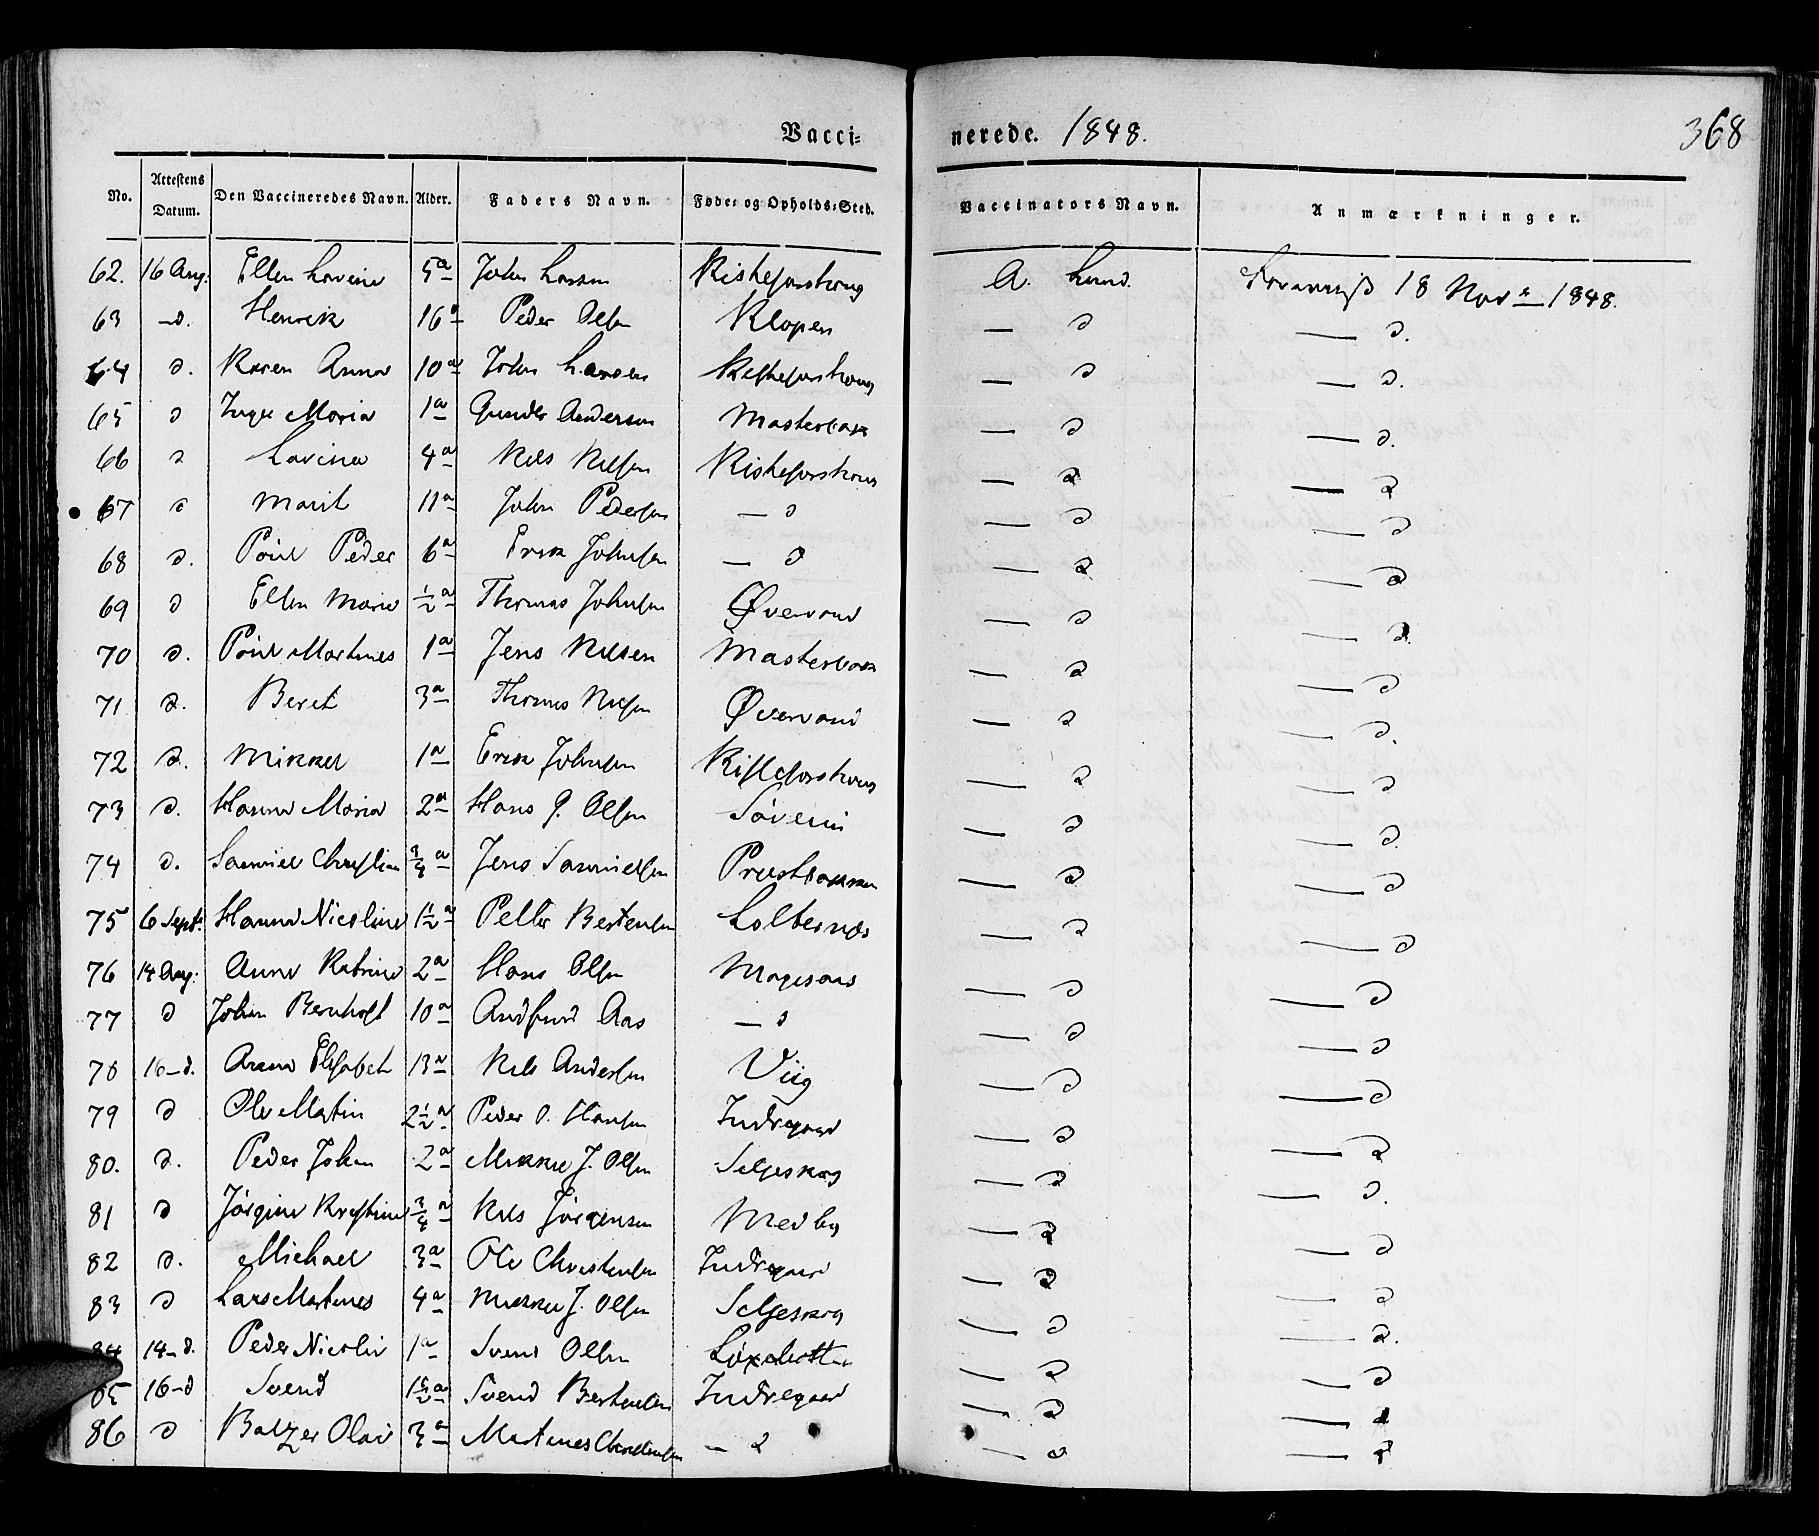 Vacci= nerede. 1848. 368
No. Attestens Datum. Den Vaccineredes Navn. Alder. Faders Navn. Føde- og Opholds-Sted. Vaccinators Navn. Anmærkninger.
62. 16 Aug. Ellen Lovine 5a John Larsen A. Lund. 18 Novr 1848.
63 — d. Henrik 16a Peder Olsen Klopen — d — d.
64 d. Karen Anna 10a John Larsen — d — d.
65 d Inger Maria 1a Gunder Anderson Masterbak — d — d.
66 d Lovina 4a Nils Nilsen — d — d
67 d Marit 11a John Pedersen — d — d — d
68 d. Poul Peder 6a Erik Johnsen — d — d — d
69 d Ellen Marie ½a Thomas Johnsen Øvervand — d — d
70 d. Poul Martines 1a Jens Nilsen Masterbak — d — d
71 d. Beret 3a Thomas Nilsen Øvervand — d — d.
72 d. Mikkel 1a Erik Johnsen — d — d
73 d. Hanna Maria 2a Hans P. Olsen Søverin — d — d
74 d. Samuel Christian ¾a Jens Samuelsen Prestbakken — d — d
75 6 Sept. Hanna Nicoline 1½a Petter Bertensen — d — d
76 14 Aug. Anne Katrine 2a Hans Olsen — d — d
77 d Johan Bernhoft 10a Andfind Aas — d — d — d
78 16 — d. Elisabet 13a Nils Andersen Viig — d — d
79 d Ole Martin 2½a Peder O. Hansen Indregaard — d — d
80. d. Peder Johan 2a Mikkel J. Olsen Seljeskog — d — d.
81 d Jørgine Kristine ¾a Nils Jørgensen Medby — d — d
82 d. Michael 3a Ole Christensen Indregaard — d — d
83 d Lars Martines 4a Mikkel J. Olsen Seljeskog — d — d.
84 14 — d. Peder Nicolai 1a Svend Olsen — d — d
85 16 — d Svend 1½a Svend Bertensen Indregaard — d — d
86 d Balzer Olai 3a Martines — d — d — d